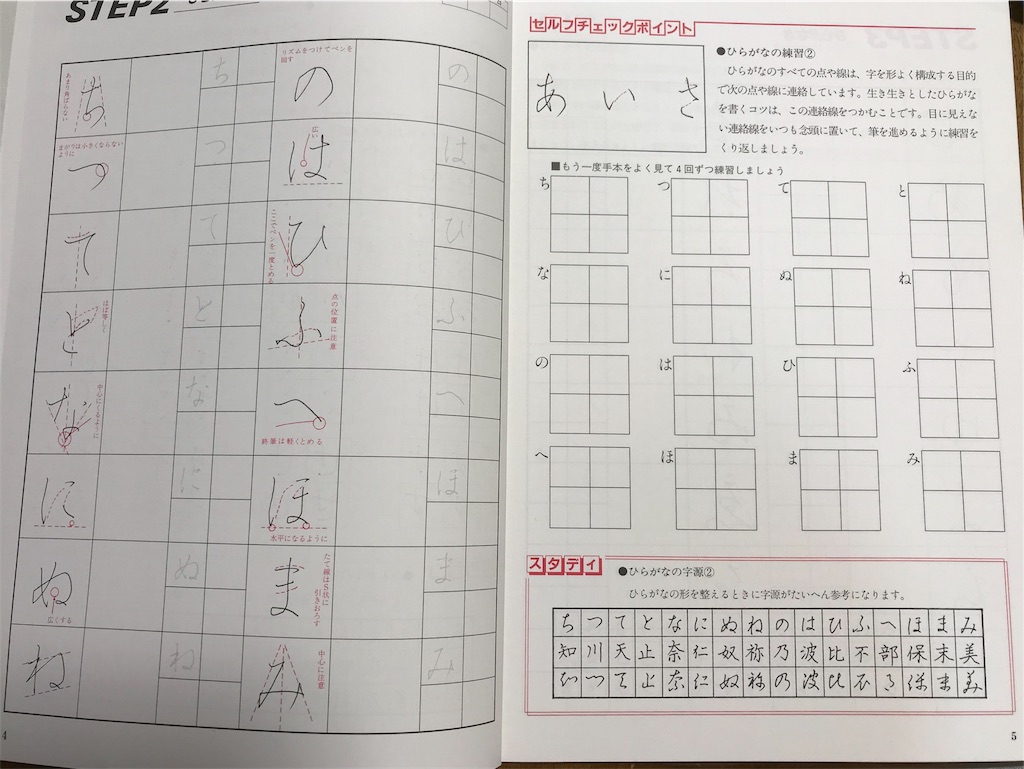 STEP2
日
ち
の
リズムをつけてペンを
回す
の
あまり角ばらない
ち
つ
は
まがりは小さくならない
ように
つ
広い
は
て
ひ
て
ここでペンを一度とめる
ひ
と
ふ
ほぼ等しく
と
点の位置に注意
ふ
な
へ
中心にくるように
な
へ
終筆は軽くとめる
に
ほ
に
ほ
水平になるように
ぬ
ま
ぬ
広くする
たて線はS状に
引きおろす
ま
ね
み
ね
中心に注意
み
4
セルフチェックポイント
あ い さ
●ひらがなの練習②
ひらがなのすべての点や線は、字を形よく構成する目的
で次の点や線に連絡しています。生き生きとしたひらがな
を書くコツは、この連絡線をつかむことです。目に見えな
い連絡線をいつも念頭に置いて、筆を進めるように練習を
くり返しましょう。
■もう一度手本をよく見て4回ずつ練習しましょう
ち つ て と
な に ぬ ね
の は ひ ふ
へ ほ ま み
スタディ
●ひらがなの字源②
ひらがなの形を整えるときに字源がたいへん参考になります。
ち つ て と な に ぬ ね の は ひ ふ へ ほ ま み
知 川 天 止 奈 仁 奴 祢 乃 波 比 不 部 保 末 美
5